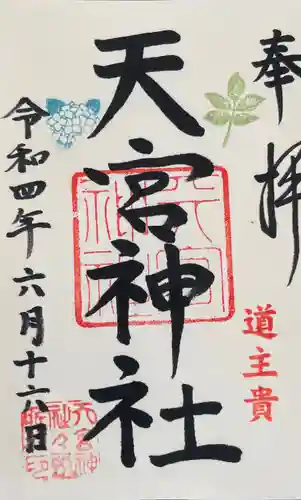 奉拝
道主貴
天宮神社
令和四年六月十六日
天宮神社